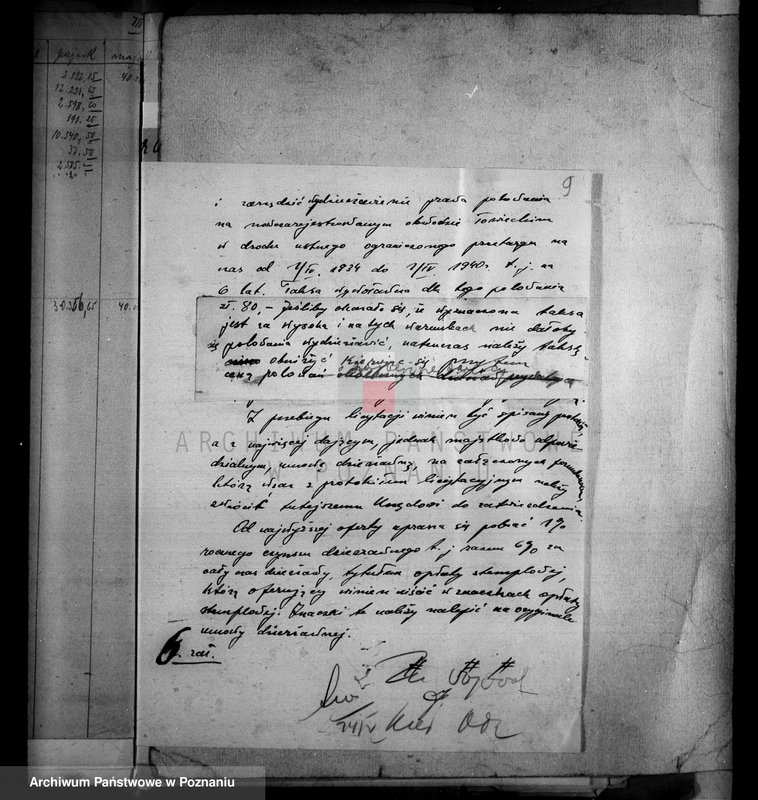 III
pojnik
2.186,15 40.
12.221,65
2.598,20
191.25
10.540,50
37,50
2.585.
40.
9
i zarządzić wydzierżawienie prawa polowania
na nowozarejestrowanym obwodzie łowieckim
w drodze ustnego ograniczonego przetargu na
czas od 1/IV. 1934 do 1/IV 1940r. t. j. na
6 lat. Taksa wywoławcza dla tego polowania
zł. 80,- Jeśliby okazało się, że wyznaczona taksa
jest za wysoka i na tych warunkach nie dałoby
się polowania wydzierżawić, natenczas należy taksę
obniżyć kierując się przytem
ceną polowań okolicznych
Z przebiegu licytacji winien być spisany protokół,
a z najwięcej dającym, jednak majątkowo odpowie-
dzialnym, umowę dzierżawną, na załączonych formularzach,
którą wraz z protokółem licytacyjnym należy
zwrócić tutejszemu Urzędowi do zatwierdzenia.
Od najwyższej oferty uprasza się pobrać 1%
rocznego czynszu dzierżawnego t. j. razem 6% za
cały czas dzierżawy, tytułem opłaty stemplowej,
którą oferujący winien uiścić w znaczkach opłaty
stemplowej. Znaczki te należy nalepić na oryginale
umowy dzierżawnej.
6 zał.
24/IV Kier Odz
ARCHIWUM PAŃSTWOWE
W POZNANIU
Archiwum Państwowe w Poznaniu